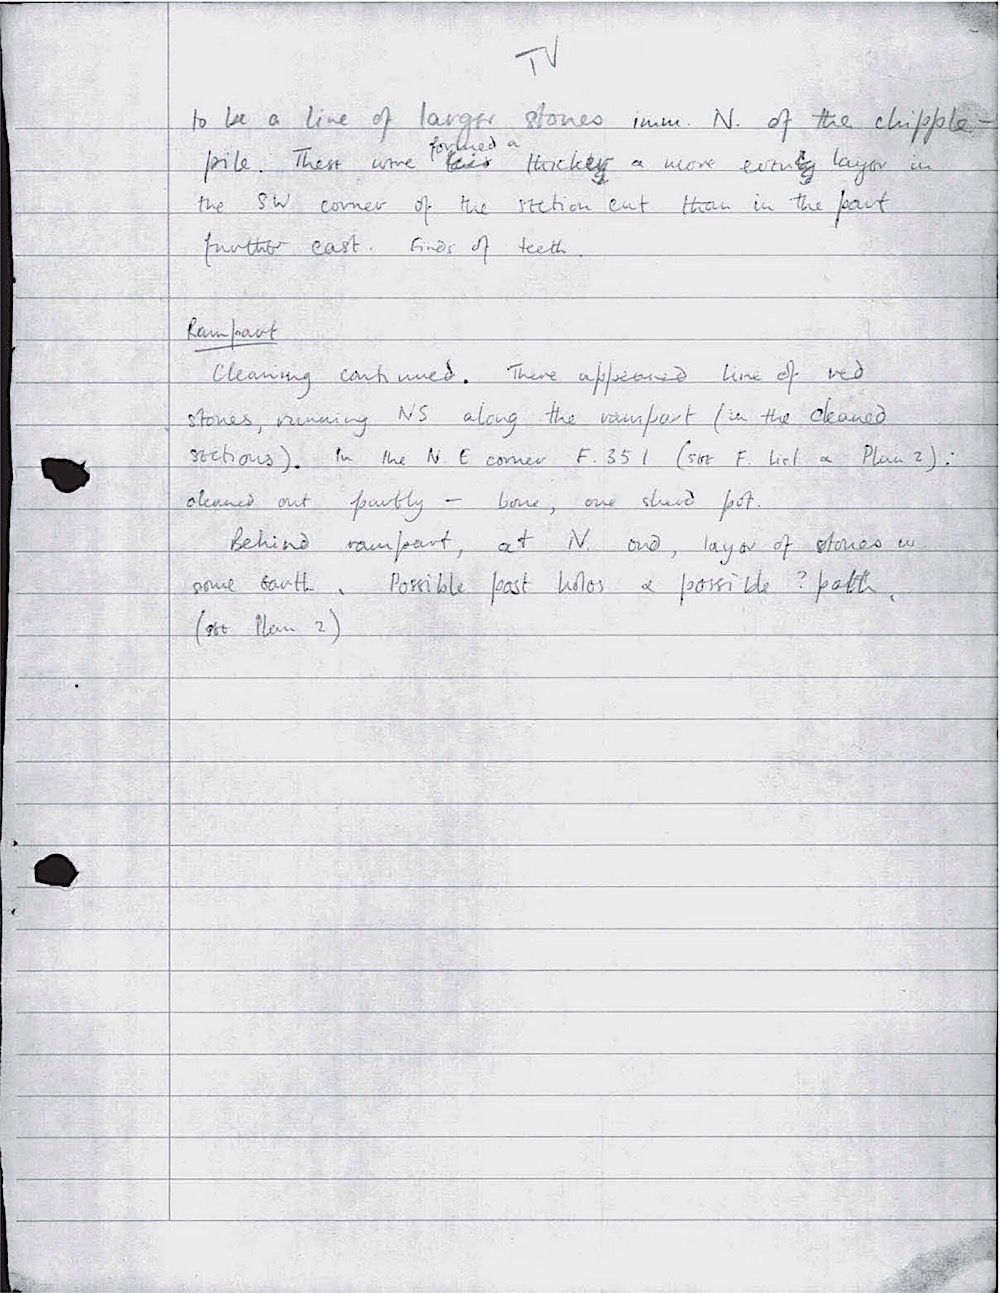 TV
to be a line of larger stones imm. N. of the chipple-
pile. These were formed a thick & a more even layer in
the SW corner of the section cut than in the part
further east. Finds of teeth.
Rampart
Cleaning continued. There appeared line of red
stones, running NS along the rampart (in the cleaned
sections). In the N.E corner F.351 (see F. list & Plan 2):
cleaned out partly – bone, one sherd pot.
Behind rampart, at N. end, layer of stones w
some earth. Possible post holes & possible ? path.
(see Plan 2)